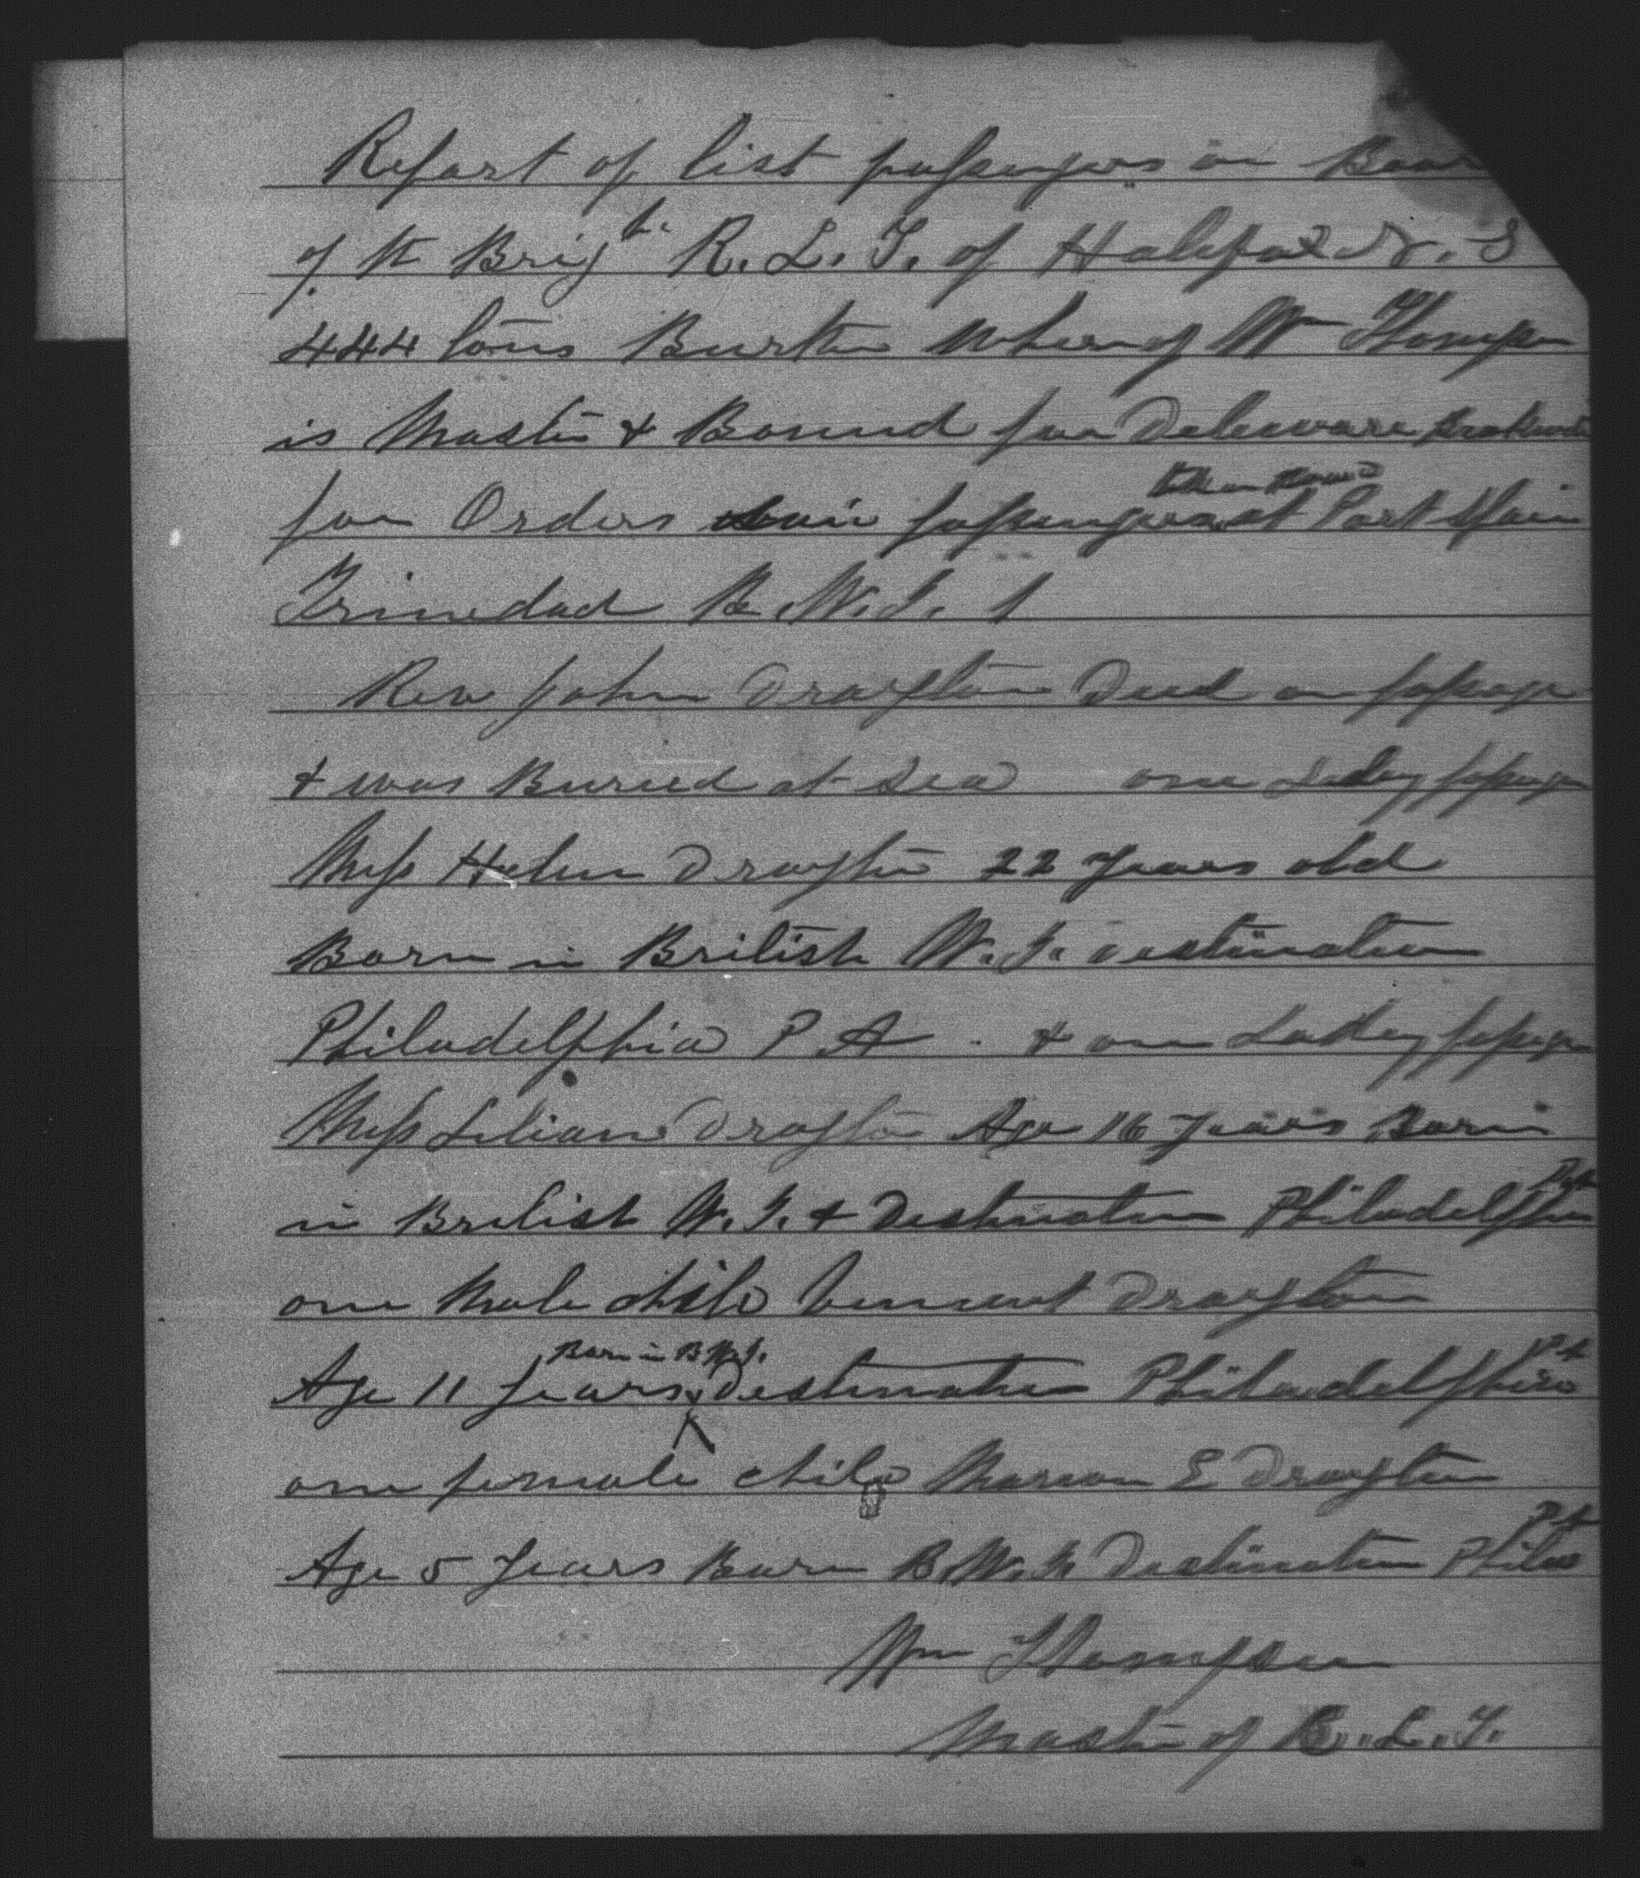 Report of list passengers on Boar
of th Brig tn R. L. T. of Halifax N. S
444 tons Burthen Whereof Wm Thompson
is Master & Bound for Deleware Breakwater
for Orders passengers taken on Board at Port Spain
Trinedad B. W. I.
Rev John Drayton Died on passage
& was Buried at Sea one Ladey passager
Miss Helen Drayton 22 Years old
Born in British W. I. destination
Philadelphia P. A. & one Ladey passager
Miss Lilian Drayton Age 16 Years Born
in British W. I. & Destination Philadelphia Pa
one Male child Vincent Drayton
Age 11 years Born in B W. I. Destination Philadelphia PA
one female child Marion E Drayton
Age 5 Years Born B. W. I. Destination Phila PA
Wm Thompson
Master of R. L. T.